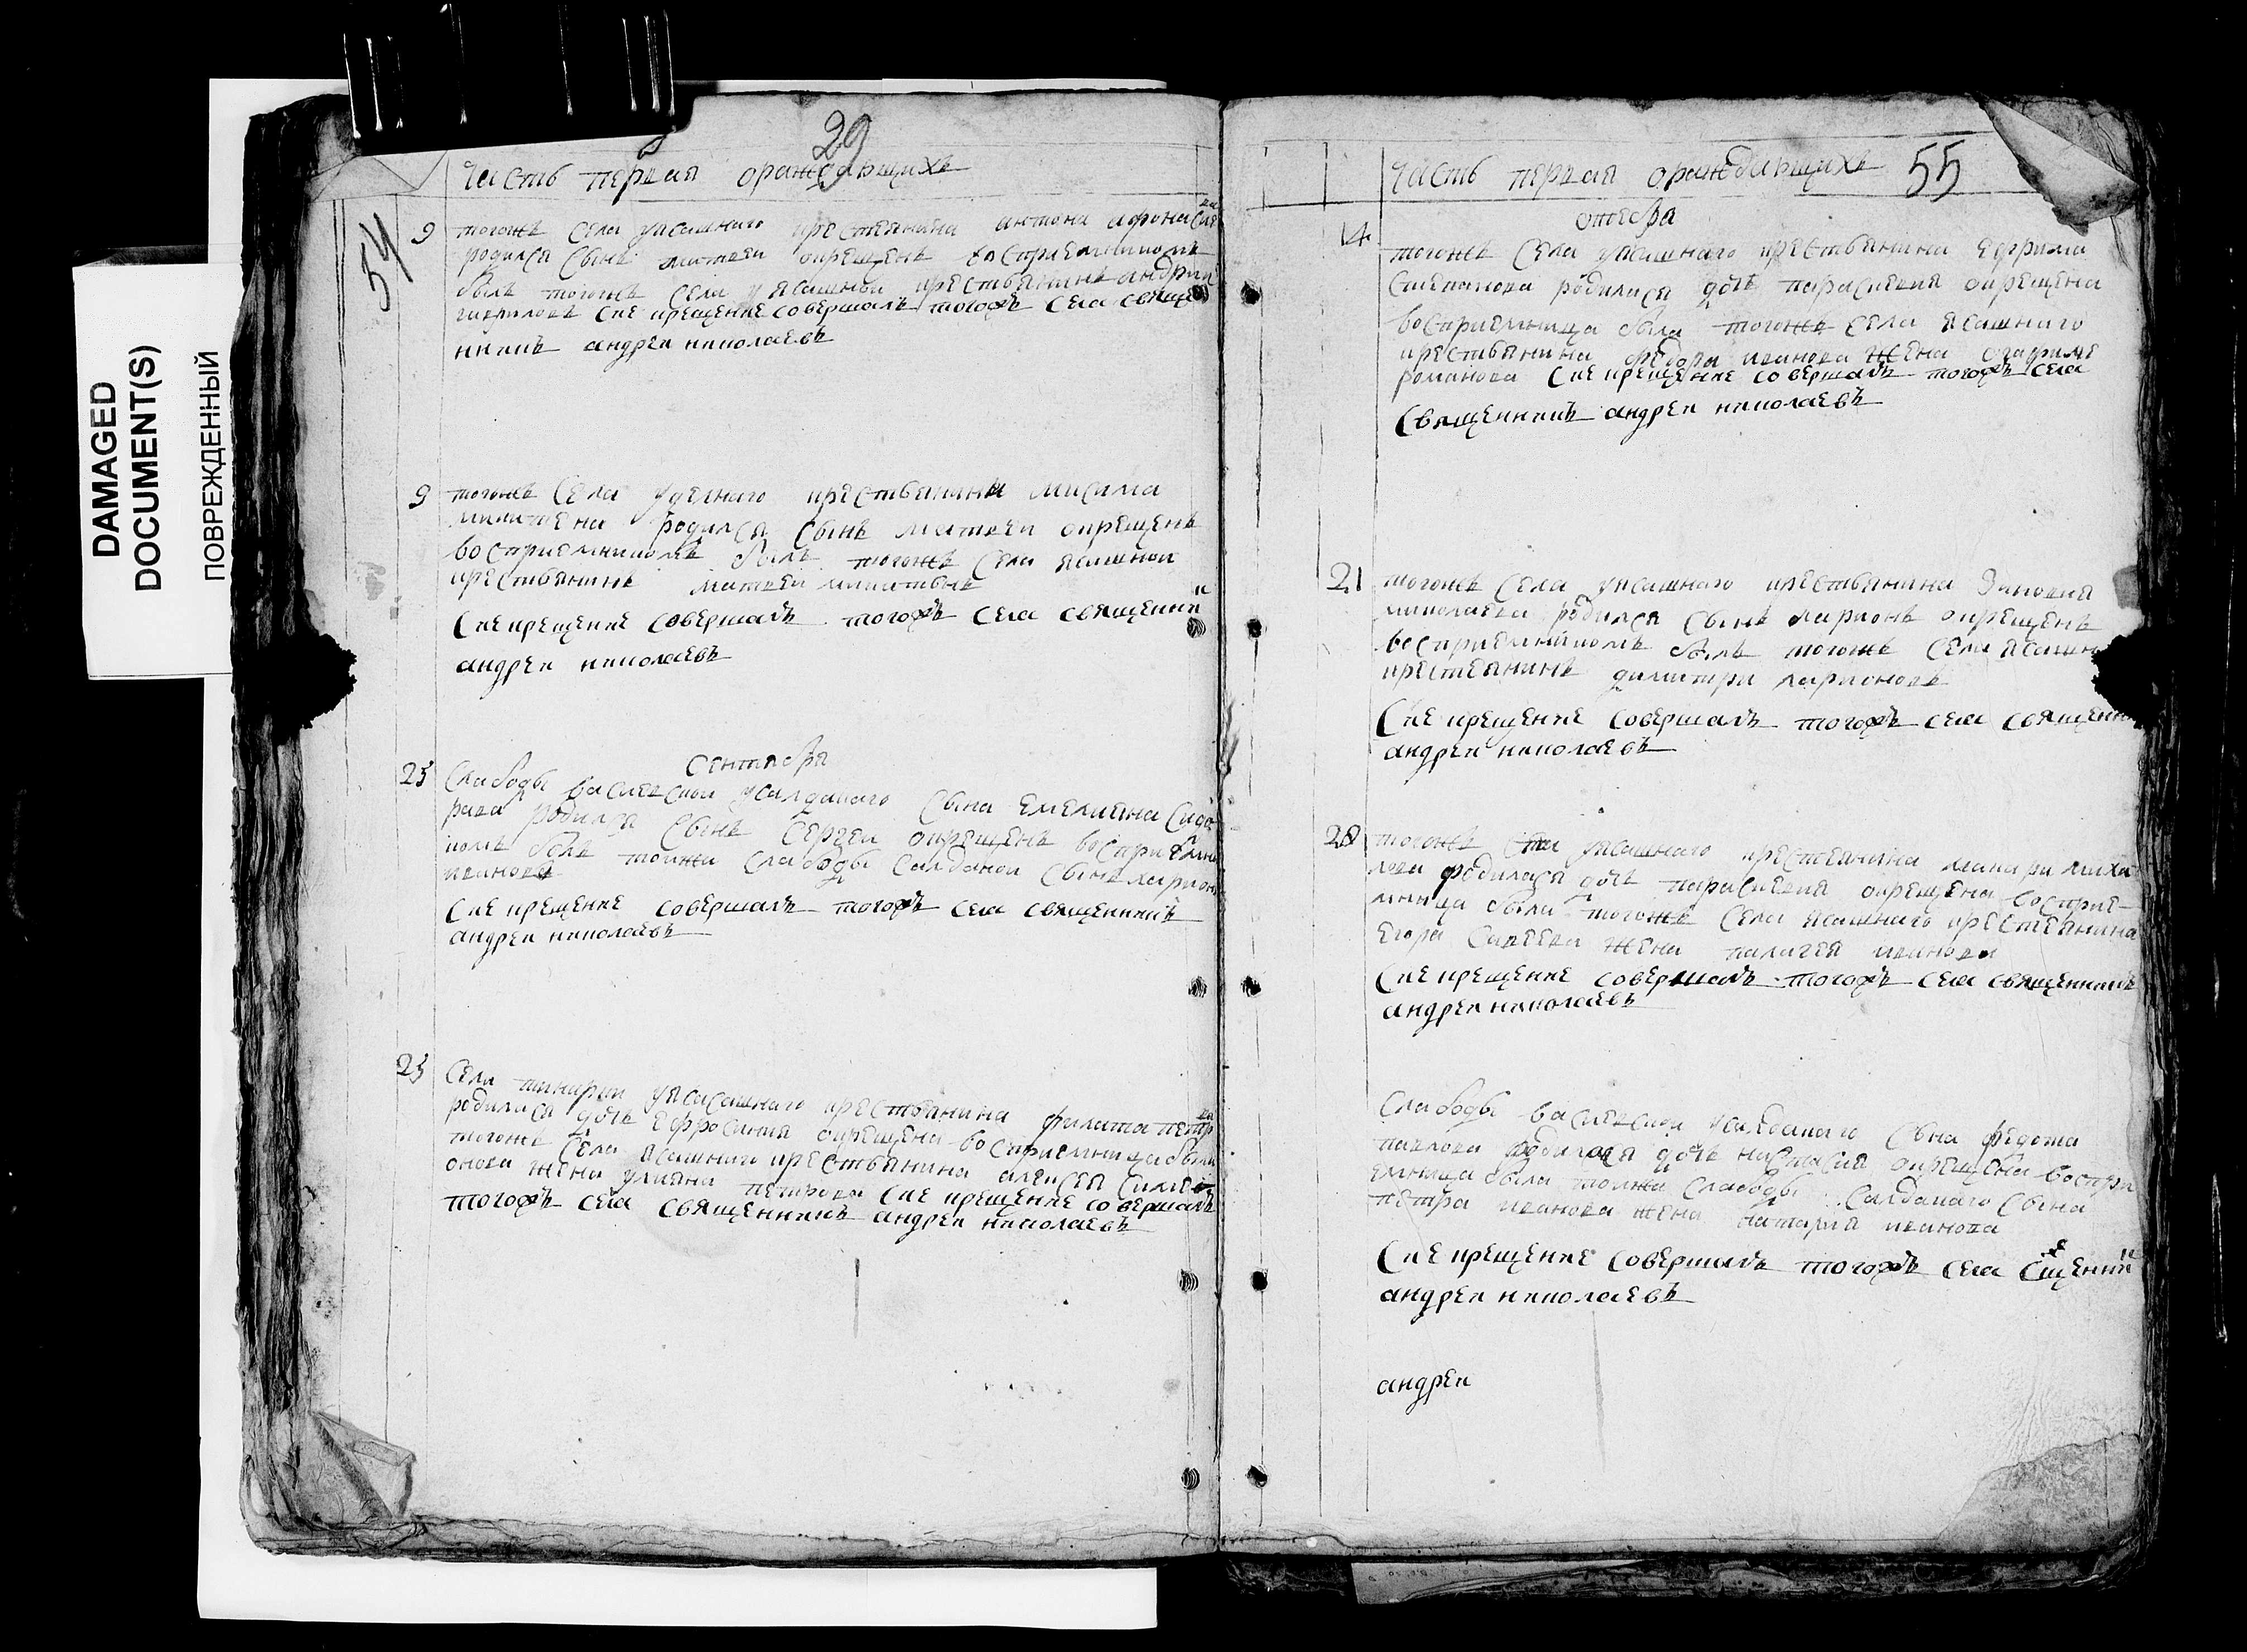 DAMAGED
DOCUMENT(S)
ПОВРЕЖДЕННЫЙ
29
54
часть первая ораждающихъ
9 тогожъ села уясашнаго крестьянина антона афонасиева
родился сынъ матвеи окрещенъ восприемникомъ
былъ тогожъ села ясашнои крестьянинъ андреи
гавриловъ сие крещение совершалъ тогожъ села свяще
нникъ андреи николаевъ
9 тогожъ села уделнаго крестьянина
никитина родился сынъ матвеи окрещенъ
восприемникомъ былъ тогожъ села ясашнои
крестьянинъ матвеи никитинъ
сие крещение совершалъ тогожъ села священни
андреи николаевъ
сентября
25 слабоды василевскои усалдацкаго сына емелияна сидо
рава родился сынъ сергеи окрещенъ восприемни
комъ былъ тоижи слабоды салдацкои сынъ ларион
ивановъ
сие крещение совершалъ тогожъ села священникъ
андреи николаевъ
25 села уясасашнаго крестьянина филата петр
родилася дочь ефросиния окрещена восприемница была
тогожъ села ясашнаго крестьянина алексея симе
онова жена улияна петрова сие крещение совершалъ
тогожъ села священникъ андреи николаевъ
часть первая ораждающихъ
55
октебря
14 тогожъ села уясашнаго крестьянина ефрима
степанова родилася дочь параскевия окрещена
восприемница была тогожъ села ясашнаго
крестьянина федора иванова жена
романова сие крещение совершалъ тогожъ села
священникъ андреи николаевъ
21 тогожъ села уясашнаго крестьянина зиновия
николаева родился сынъ ларионъ окрещенъ
восприемникомъ былъ тогожъ села ясашн
крестеянинъ димитри ларионовъ
сие крещение совершалъ тогожъ села священни
андреи николаевъ
28 тогожъ уясашнаго крестеянина макара миха
лова родилася дочь параскевия окрещена восприе-
мница была тогожъ села ясашнаго крестеянина
егора савеева жена палагея иванова
сие крещение совершалъ тогожъ села священникъ
андреи николаевъ
слабоды василевскои усалдацкаго сына федота
павлова родилася дочь настасия окрещена воспри
емница была тоижи слабоды салдацкаго сына
петра иванова жена наталия иванова
сие крещение совершалъ тогожъ села сщенни
андреи николаевъ
андреи